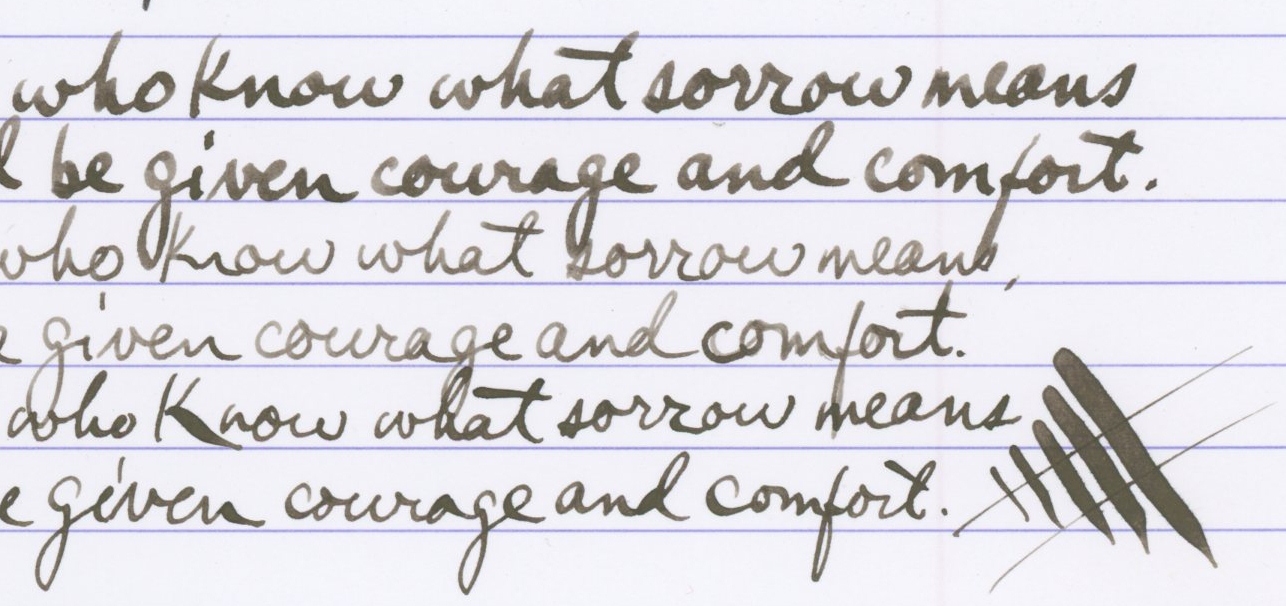 who know what sorrow means
be given courage and comfort.
who know what sorrow means,
given courage and comfort.
who know what sorrow means
given courage and comfort.